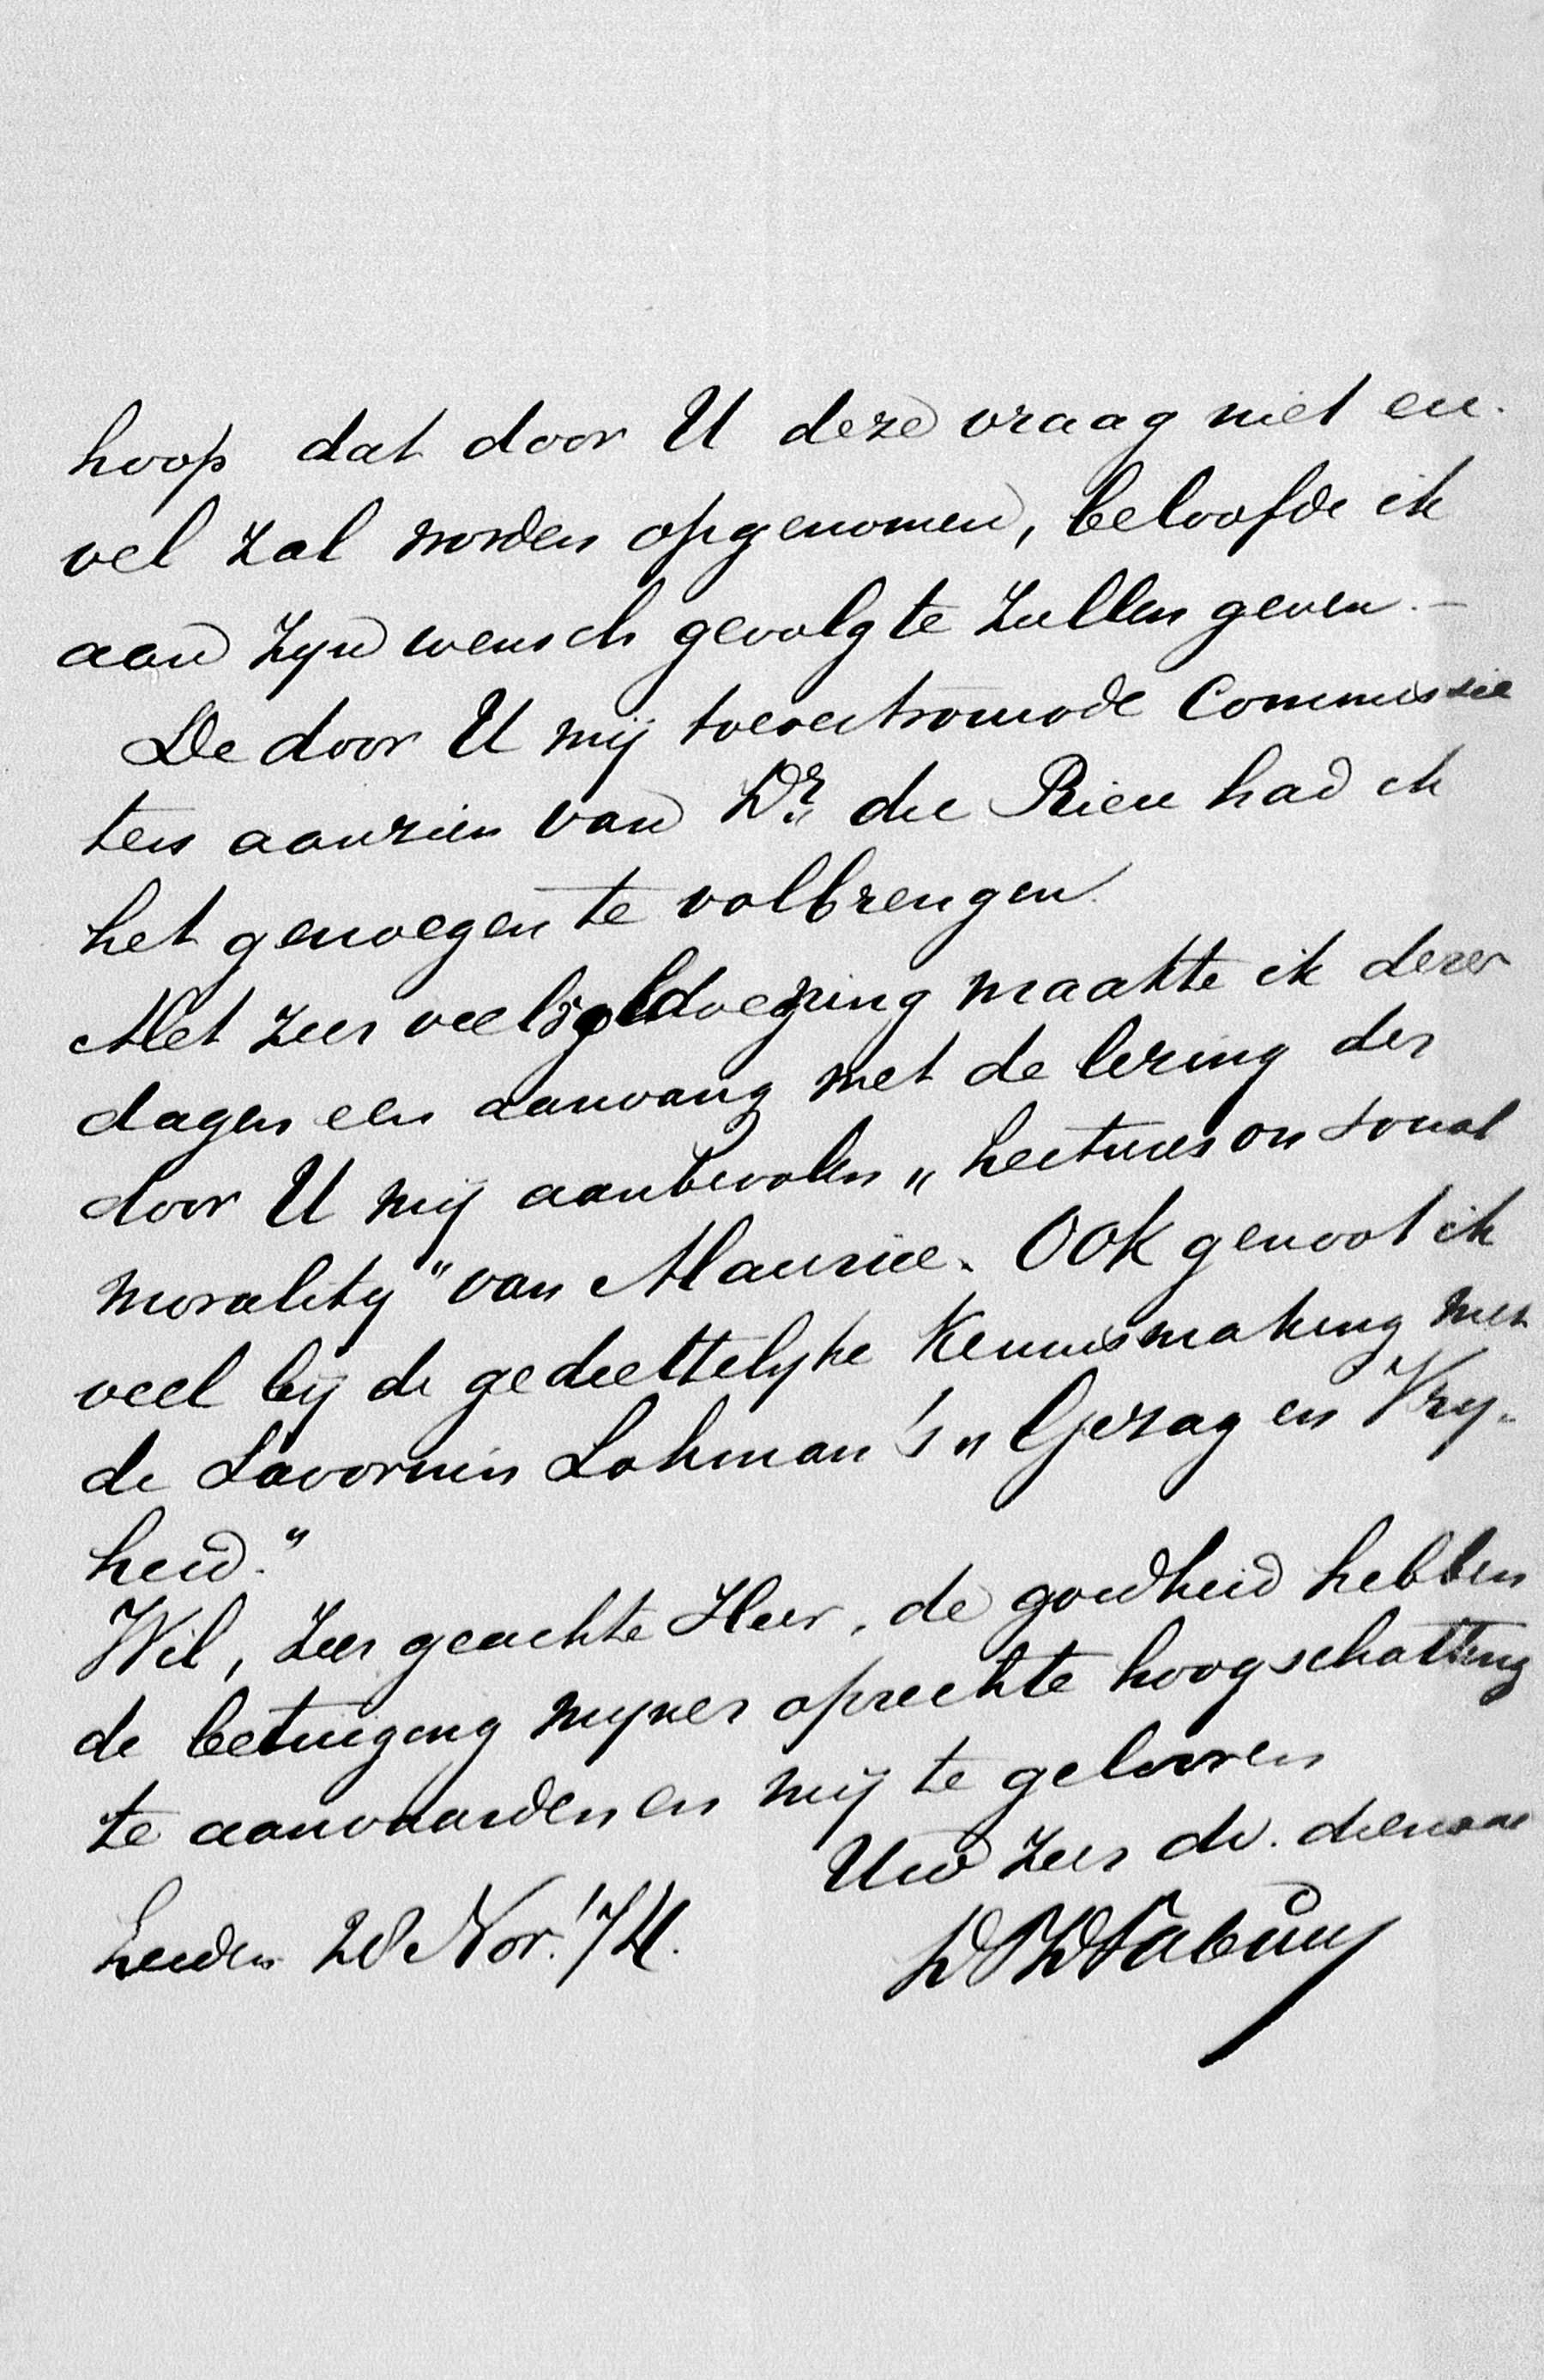 hoop dat door U deze vraag niet eu-
vel zal worden opgenomen, beloofde ik
aan zijn wensch gevolg te zullen geven. –
De door U mij toevertrouwde Commissie
ten aanzien van Dr. du Rieu had ik
het genoegen te volbrengen.
Met zeer veel voldoening maakte ik dezer
dagen een aanvang met de lezing der
door U mij aanbevolen „Lectures on social
morality" van Maurice. Ook genoot ik
veel bij de gedeeltelijke kennismaking met
de Savornin Lohman's „Gezag en Vrij-
heid."
Wil, zeer geachte Heer, de goedheid hebben
de betuiging mijner oprechte hoogschatting
te aanvaarden en mij te gelooven
Uw zeer dv. dienaar
Leiden 28 Nov. '74.
DPDFabius